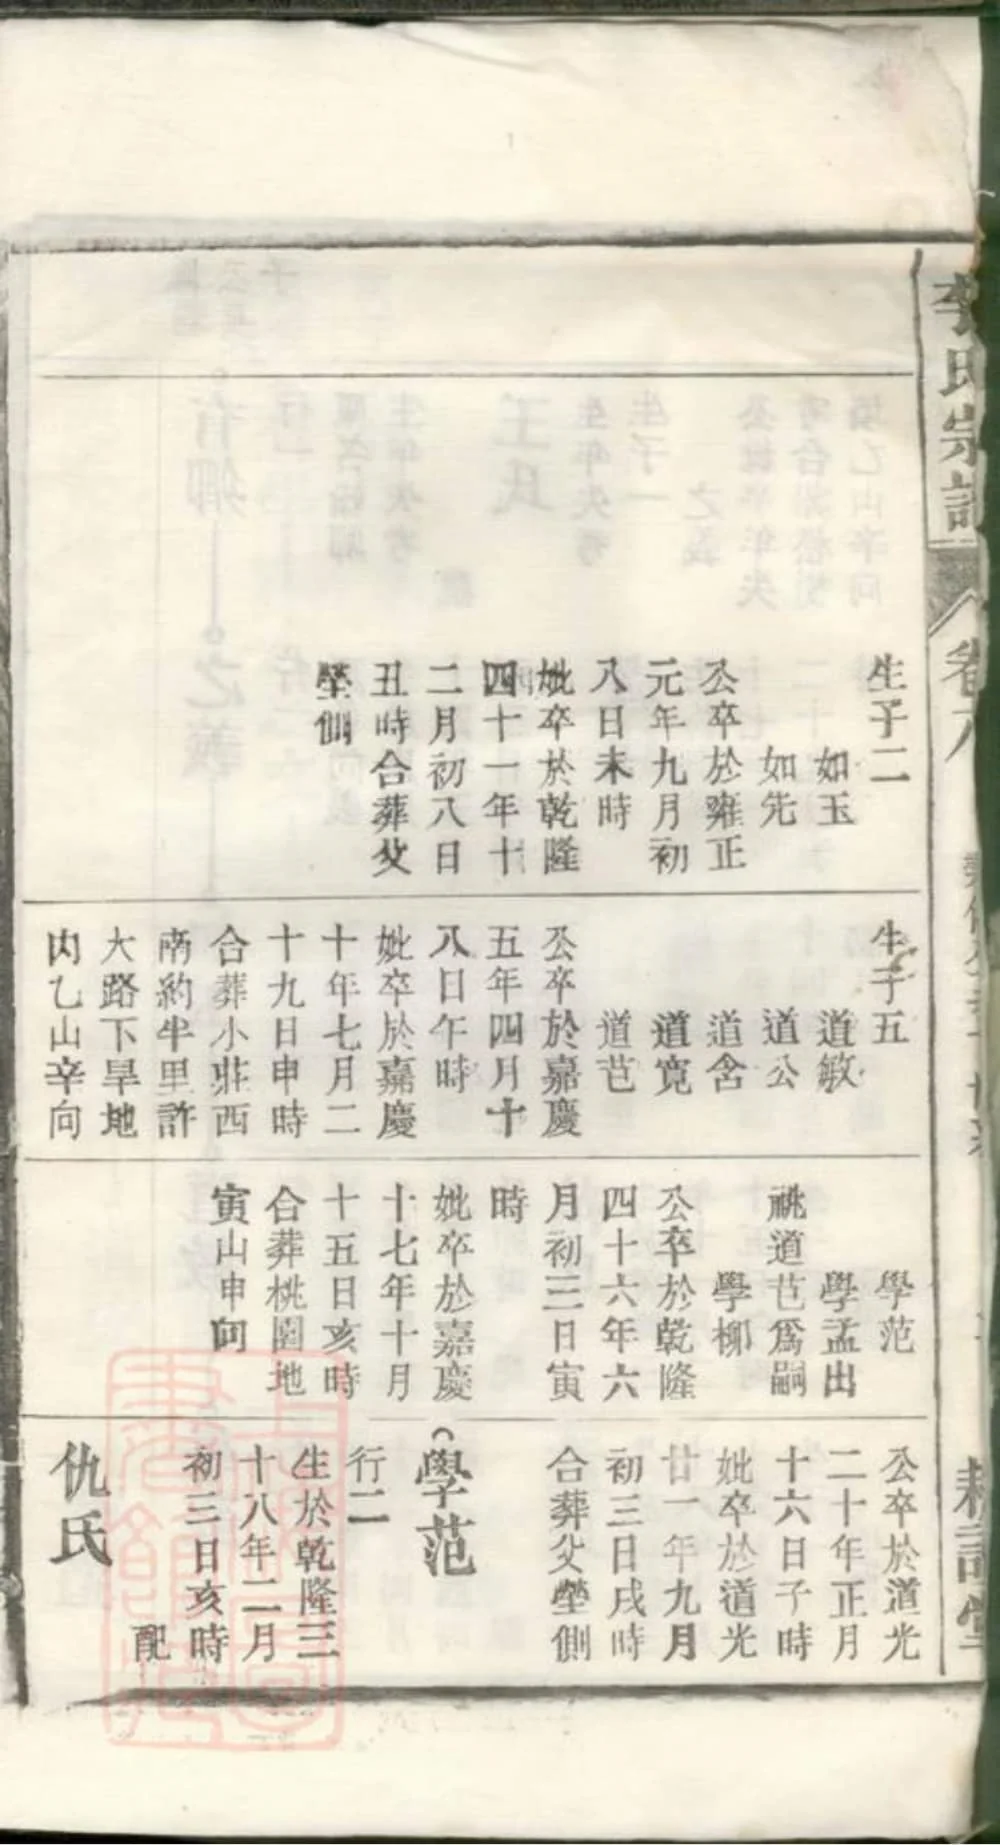 氏宗譜
卷八
耕讀堂
生子二
如玉
如先
公卒於雍正
元年九月初
八日未時
妣卒於乾隆
四十一年十
二月初八日
丑時合葬父
塋側
生子五
道敏
道公
道含
道寬
道芑
公卒於嘉慶
五年四月十
八日午時
妣卒於嘉慶
十年七月二
十九日申時
合葬小莊西
南約半里許
大路下旱地
內乙山辛向
學范
學孟出
祧道芑爲嗣
學柳
公卒於乾隆
四十六年六
月初三日寅
時
妣卒於嘉慶
十七年十月
十五日亥時
合葬桃園地
寅山申向
公卒於道光
二十年正月
十六日子時
妣卒於道光
廿一年九月
初三日戌時
合葬父塋側
學范
行二
生於乾隆三
十八年二月
初三日亥時
配
仇氏